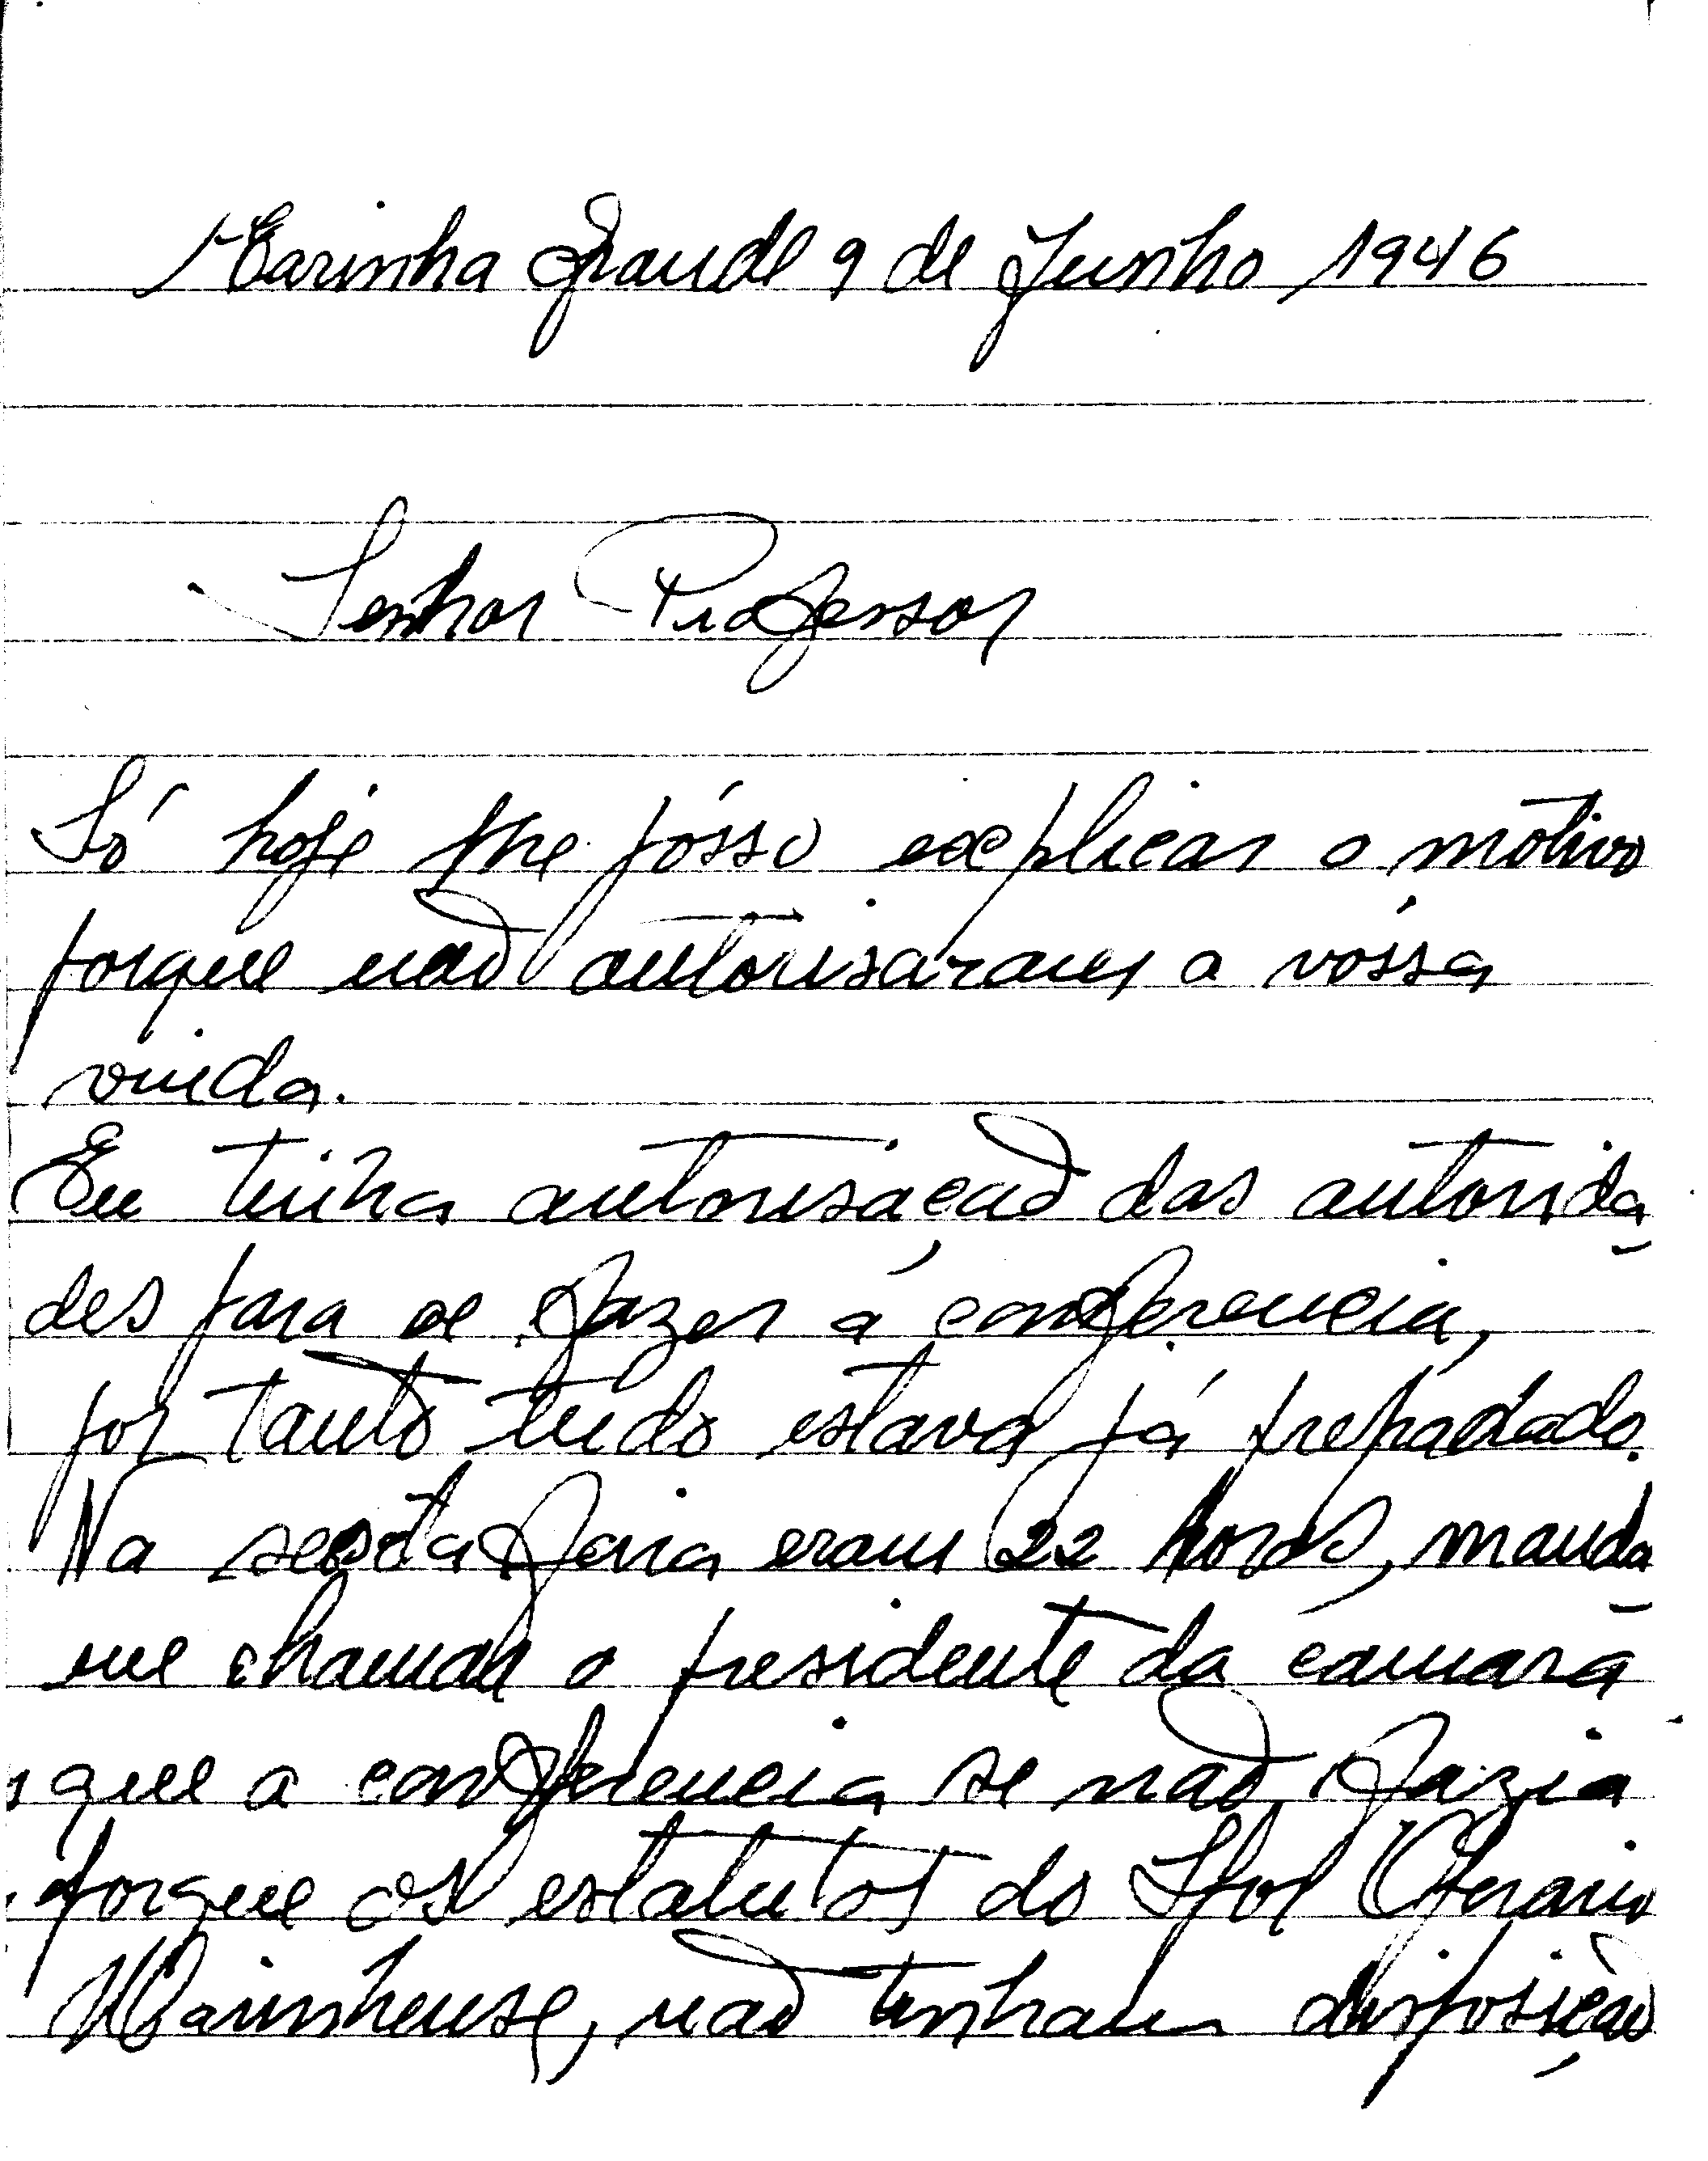 Marinha Grande 9 de Junho 1946
Senhor Professor
Só hoje lhe pósso explicar o motivo
porque não autorisaram a vóssa
vinda.
Eu tinha autorisação das autorida
des para se fazer a conferencia,
por tanto tudo estava já preparado.
Na sexta feria eram 22 horas, manda
me chamar o presidente da camara
que a conferencia se não fazia
porque os estatutos do Spor Operario
Marinhense, não tinham disposição